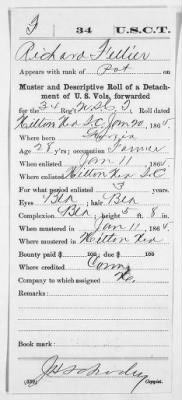 F 34 U.S.C.T.
Richard Fullier
Appears with rank of Pvt on
Muster and Descriptive Roll of a Detach-
ment of U. S. Vols. forwarded
for the 34 Reg't U.S.C.T. Roll dated
Hilton Hed S.C. Jan 20, 186
Where born
Age 28 y'rs; occupation Farmer
When enlisted Jan 11, 186
Where enlisted Hilton Hed S.C.
For what period enlisted 3 years.
Eyes Blk; hair Blk
Complexion Blk; height 5 ft. 8 in.
When mustered in Jan 11, 186
Where mustered in Hilton Hed
Bounty paid $ 100; due $ 100
Where credited Conn
Company to which assigned
Remarks:
Book mark:
(339) Copyist.